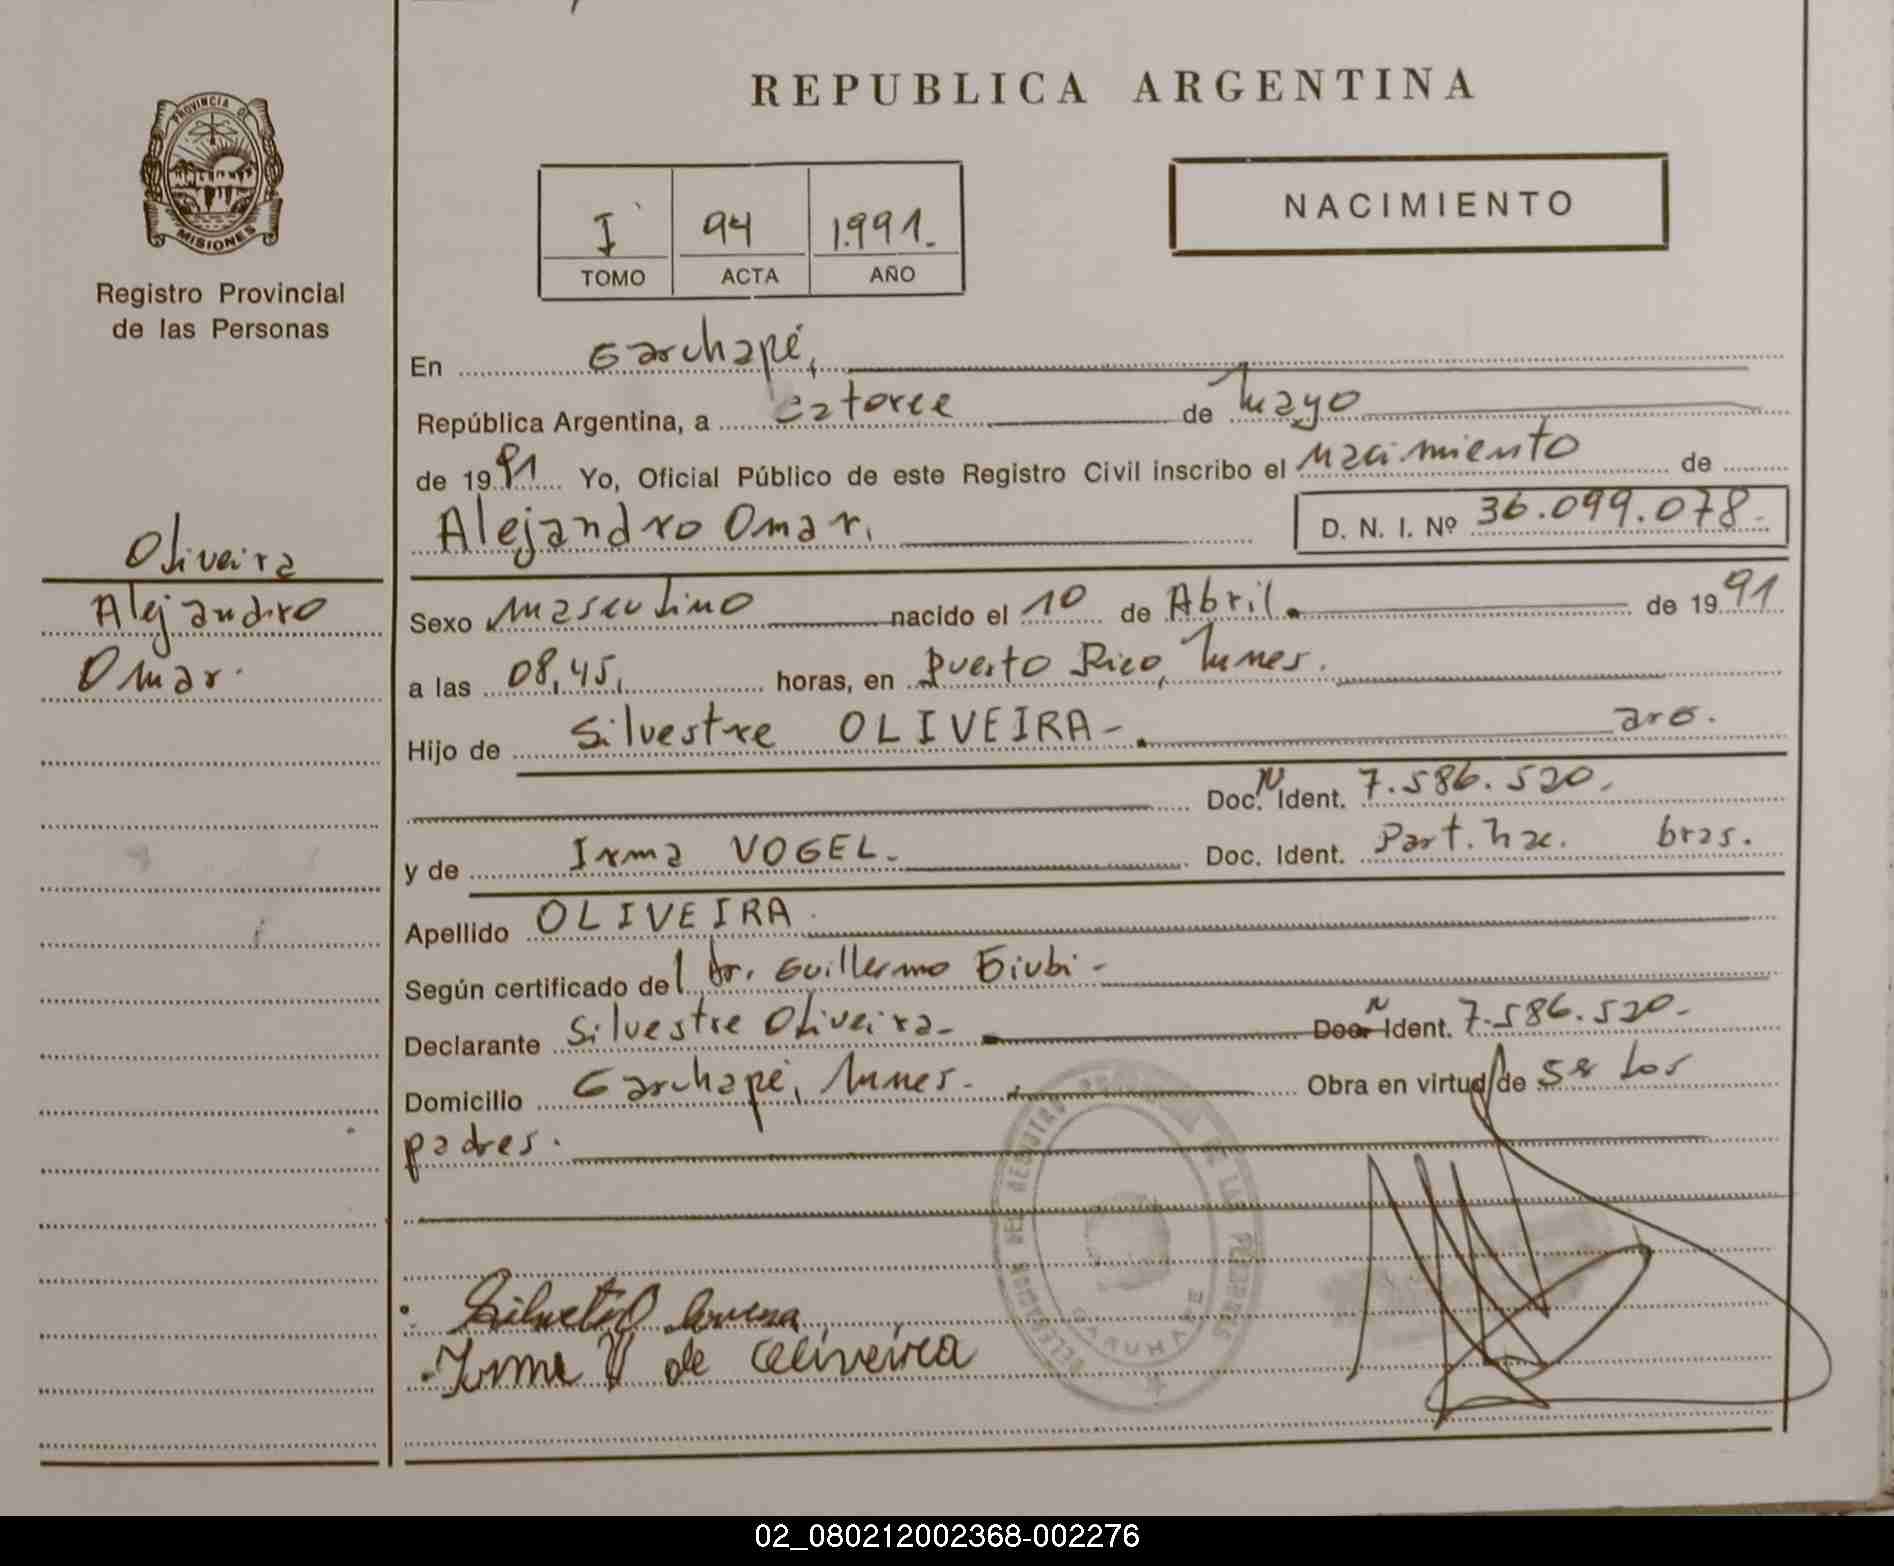 REPUBLICA ARGENTINA
PROVINCIA DE
MISIONES
Registro Provincial
de las Personas
NACIMIENTO
I 94 1.991.
TOMO ACTA AÑO
En Garuhapé,
República Argentina, a catorce de Mayo
de 1991 Yo, Oficial Público de este Registro Civil inscribo el nacimiento de
Alejandro Omar. D. N. I. Nº 36.099.078.-
Oliveira
Alejandro
Omar.
Sexo masculino nacido el 10 de Abril. de 1991
a las 08,45, horas, en Puerto Rico,
Hijo de Silvestre OLIVEIRA - arg.
Doc. N Ident. 7.586.520.
y de Irma VOGEL.- Doc. Ident. Part. bras.
Apellido OLIVEIRA.
Según certificado del Dr. Guillermo
Declarante Silvestre Oliveira.- Doc. N Ident. 7.586.520.-
Domicilio Garuhapé, Obra en virtud de ser los
padres.
DELEGACION DEL REGISTRO PROVINCIAL DE LAS PERSONAS
GARUHAPE
Irma V de Oliveira
02_080212002368-002276